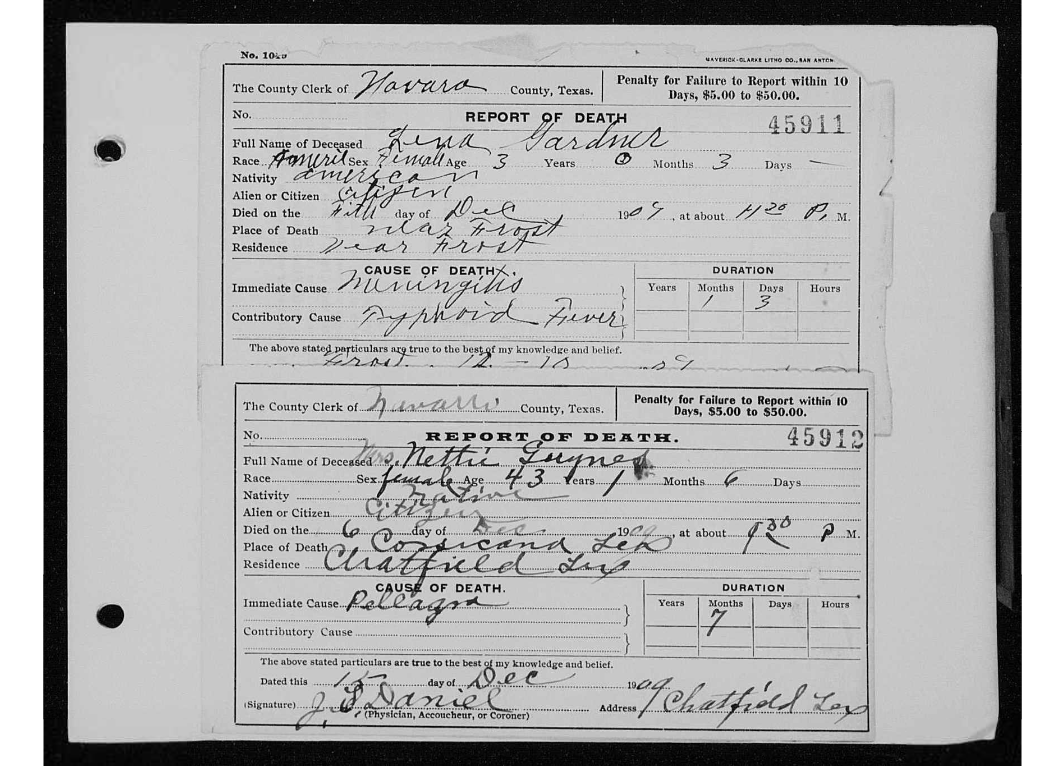 No. 1045 MAVERICK-CLARKE LITHO CO., SAN ANTON
The County Clerk of Navaro County, Texas. Penalty for Failure to Report within 10 Days, $5.00 to $50.00.
No. REPORT OF DEATH 45911
Full Name of Deceased Lena Gardner
Race Americ Sex Femall Age 3 Years 0 Months 3 Days —
Nativity american
Alien or Citizen Citizen
Died on the Fith day of Dec 1909, at about 4 30 P. M.
Place of Death near Frost
Residence Near Frost
CAUSE OF DEATH. DURATION
Immediate Cause Meningitis Years Months Days Hours
1 3
Contributory Cause Typhoid Fever
The above stated particulars are true to the best of my knowledge and belief.
Frost 12 - 10 09
The County Clerk of Navarro County, Texas. Penalty for Failure to Report within 10 Days, $5.00 to $50.00.
No. REPORT OF DEATH. 45912
Full Name of Deceased Mrs. Nettie Guynes
Race Sex female Age 43 Years 1 Months 6 Days
Nativity Native
Alien or Citizen Citizen
Died on the 6 day of Dec 1909, at about 9 30 P M.
Place of Death Corsicana Tex
Residence Chatfield Tex
CAUSE OF DEATH. DURATION
Immediate Cause Pellagra Years Months Days Hours
7
Contributory Cause
The above stated particulars are true to the best of my knowledge and belief.
Dated this 15 day of Dec 1909
(Signature) J. S. Daniel Address Chatfield Tex
(Physician, Accoucheur, or Coroner)